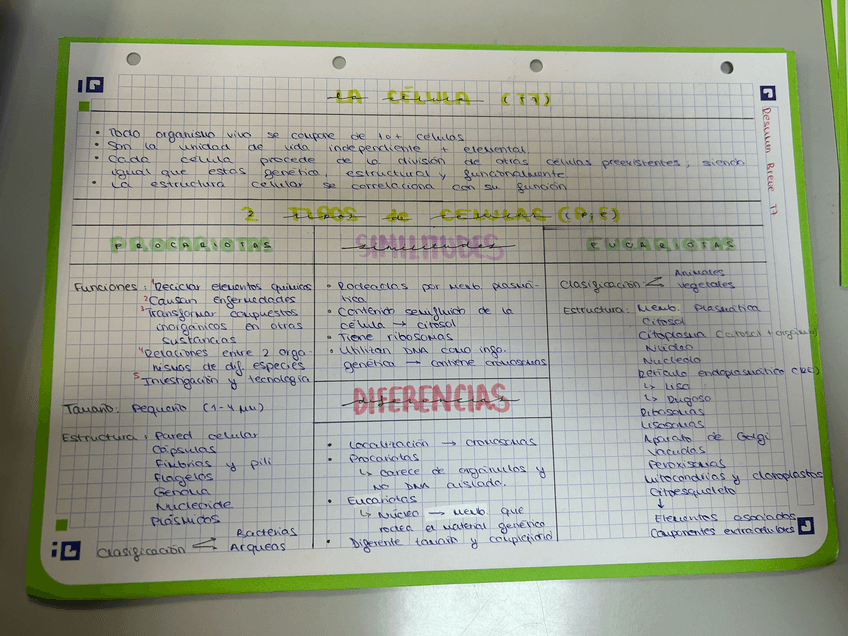 LA CÉLULA (T7)
• Todo organismo vivo se compone de 1 o + células
• Son la unidad de vida independiente + elemental.
• Cada célula procede de la división de otras células preexistentes, siendo
igual que estas genética, estructural y funcionalmente.
• La estructura celular se correlaciona con su función
Resumen Breve T7
2 TIPOS de CÉLULAS (P, E)
PROCARIOTAS
Funciones: 1 Reciclar elementos químicos
2 Causan enfermedades
3 Transformar compuestos
inorgánicos en otras
sustancias
4 Relaciones entre 2 orga-
nismos de dif. especies
5 Investigación y tecnología
Tamaño: Pequeño (1-4 μm)
Estructura: Pared celular
Cápsulas
Fimbrias y pili
Flagelos
Genoma
Nucleoide
Plásmidos
Clasificación < Bacterias
Arqueas
SIMILITUDES
similitudes
• Rodeadas por memb. plasmá-
tica
• Contenido semifluido de la
célula → citosol
• Tiene ribosomas
• Utilizan DNA como info.
genética → contiene cromosomas
DIFERENCIAS
diferencias
• Localización → cromosomas
• Procariotas
↳ carece de orgánulos y
no DNA aislado.
• Eucariotas
↳ Núcleo → memb. que
rodea el material genético
• Diferente tamaño y
EUCARIOTAS
Clasificación < Animales
vegetales
Estructura: Memb. Plasmática
Citosol
Citoplasma (citosol + orgánulos)
Núcleo
Nucleolo
Retículo endoplasmático (RE)
↳ Liso
↳ Rugoso
Ribosomas
Lisosomas
Aparato de Golgi
Vacuolas
Peroxisomas
Mitocondrias y cloroplastos
Citoesqueleto
↓
Elementos asociados
Componentes extracelulares